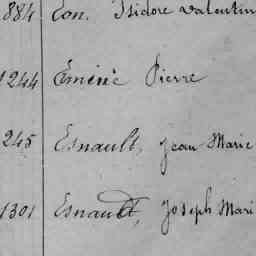 884 Eon. Isidore Valentin
1244 Éminé Pierre
245 Esnault, Jean Marie
1301 Esnault, Joseph Mari